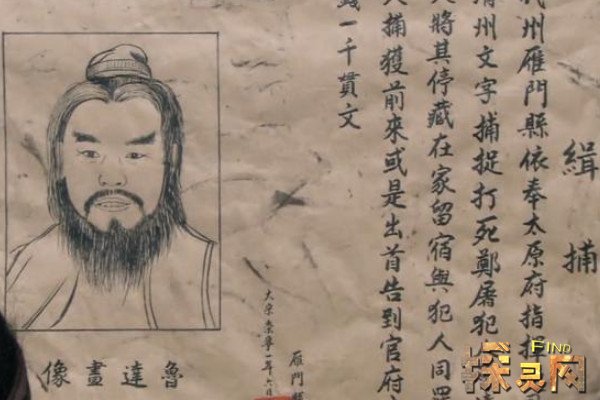 緝捕
州雁門縣依奉太原府指揮
渭州文字捕捉打死鄭屠犯
人將其停藏在家留宿與犯人同罪
人捕獲前來或是出首告到官府
錢一千貫文
雁門縣
大宋崇寧一年六月
魯達畫像
FIND
探灵网